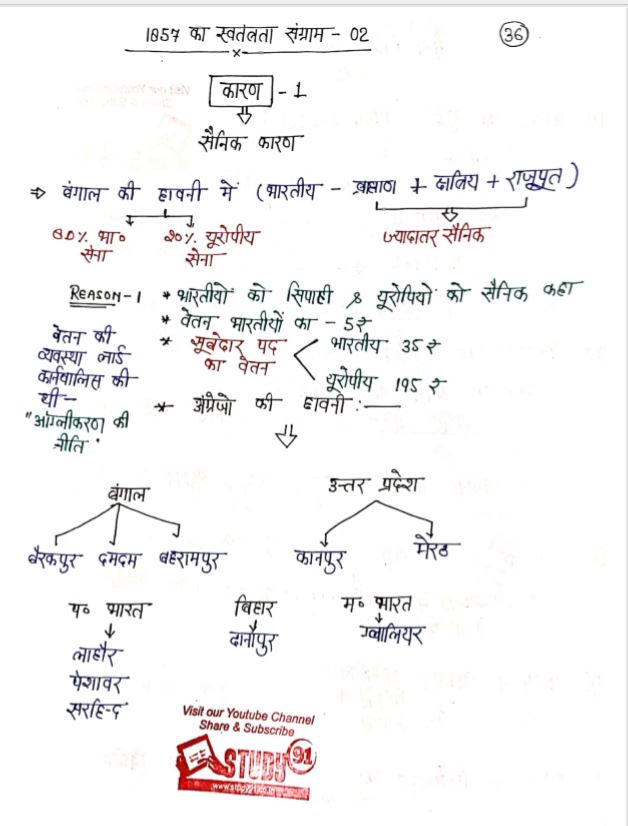 1857 का स्वतंत्रता संग्राम - 02
36
कारण - 1
सैनिक कारण
⇒ बंगाल की छावनी में (भारतीय - ब्राह्मण + क्षत्रिय + राजपूत)
80% भा० सेना
20% यूरोपीय सेना
ज्यादातर सैनिक
REASON-1 * भारतीयों को सिपाही & यूरोपियों को सैनिक कहा
* वेतन भारतीयों का - 5₹
* सूबेदार पद का वेतन
भारतीय 35₹
यूरोपीय 195₹
वेतन की
व्यवस्था लार्ड
कार्नवालिस की
थी -
"आंग्लीकरण की
नीति"
* अंग्रेजो की छावनी :-
बंगाल
उत्तर प्रदेश
बैरकपुर दमदम बहरामपुर
कानपुर मेरठ
प० भारत
लाहौर
पेशावर
सरहिन्द
बिहार
दानापुर
म० भारत
ग्वालियर
Visit our Youtube Channel
Share & Subscribe
STUDY 91